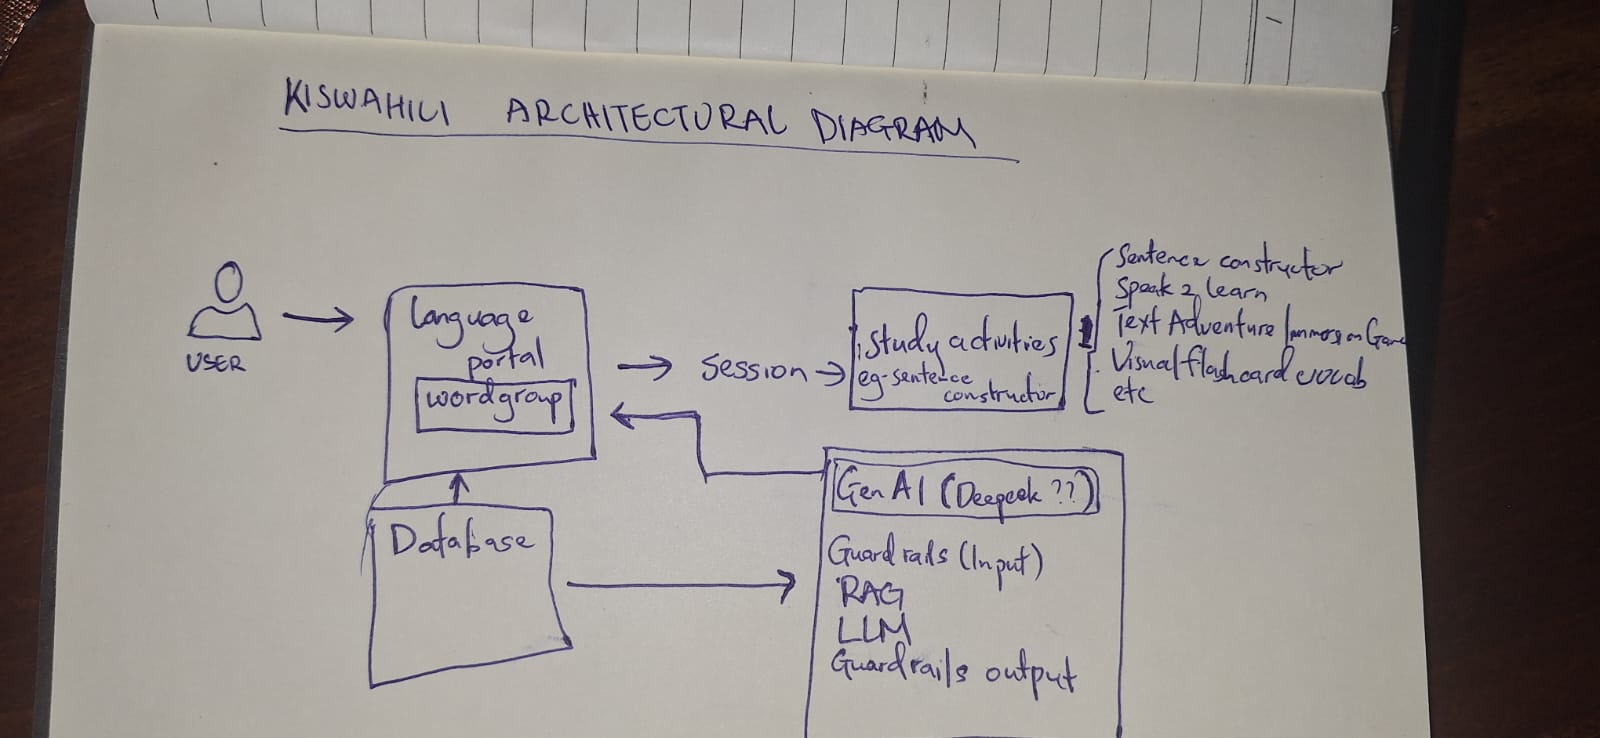 KISWAHILI ARCHITECTURAL DIAGRAM
USER
language
portal
wordgroup
SESSION
Study activities
eg-sentence
constructor
Sentence constructor
Speak 2 learn
Text Adventure Immersion Game
Visual flashcard vocab
etc
Database
Gen AI (Deepeek ??)
Guard rails (Input)
RAG
LLM
Guardrails output